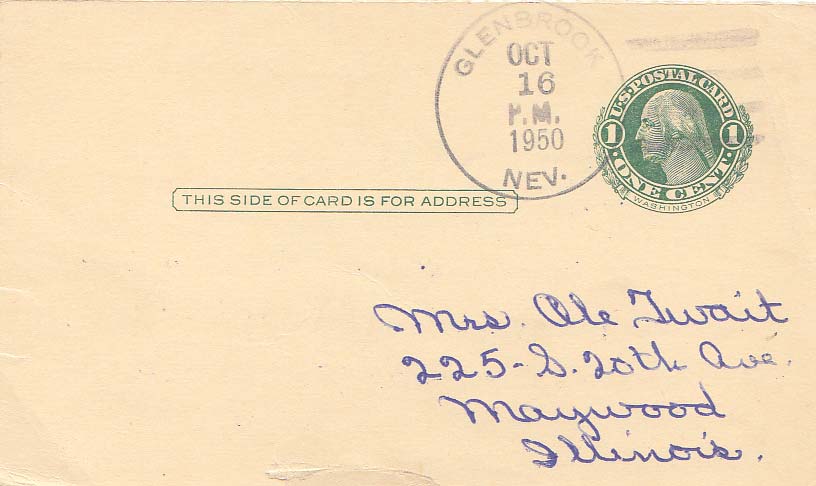 GLENBROOK
OCT
16
P.M.
1950
NEV.
U.S. POSTAL CARD
1 1
ONE CENT
WASHINGTON
THIS SIDE OF CARD IS FOR ADDRESS
Mrs. Ole Twait
225-S. 20th Ave.
Maywood
Illinois.